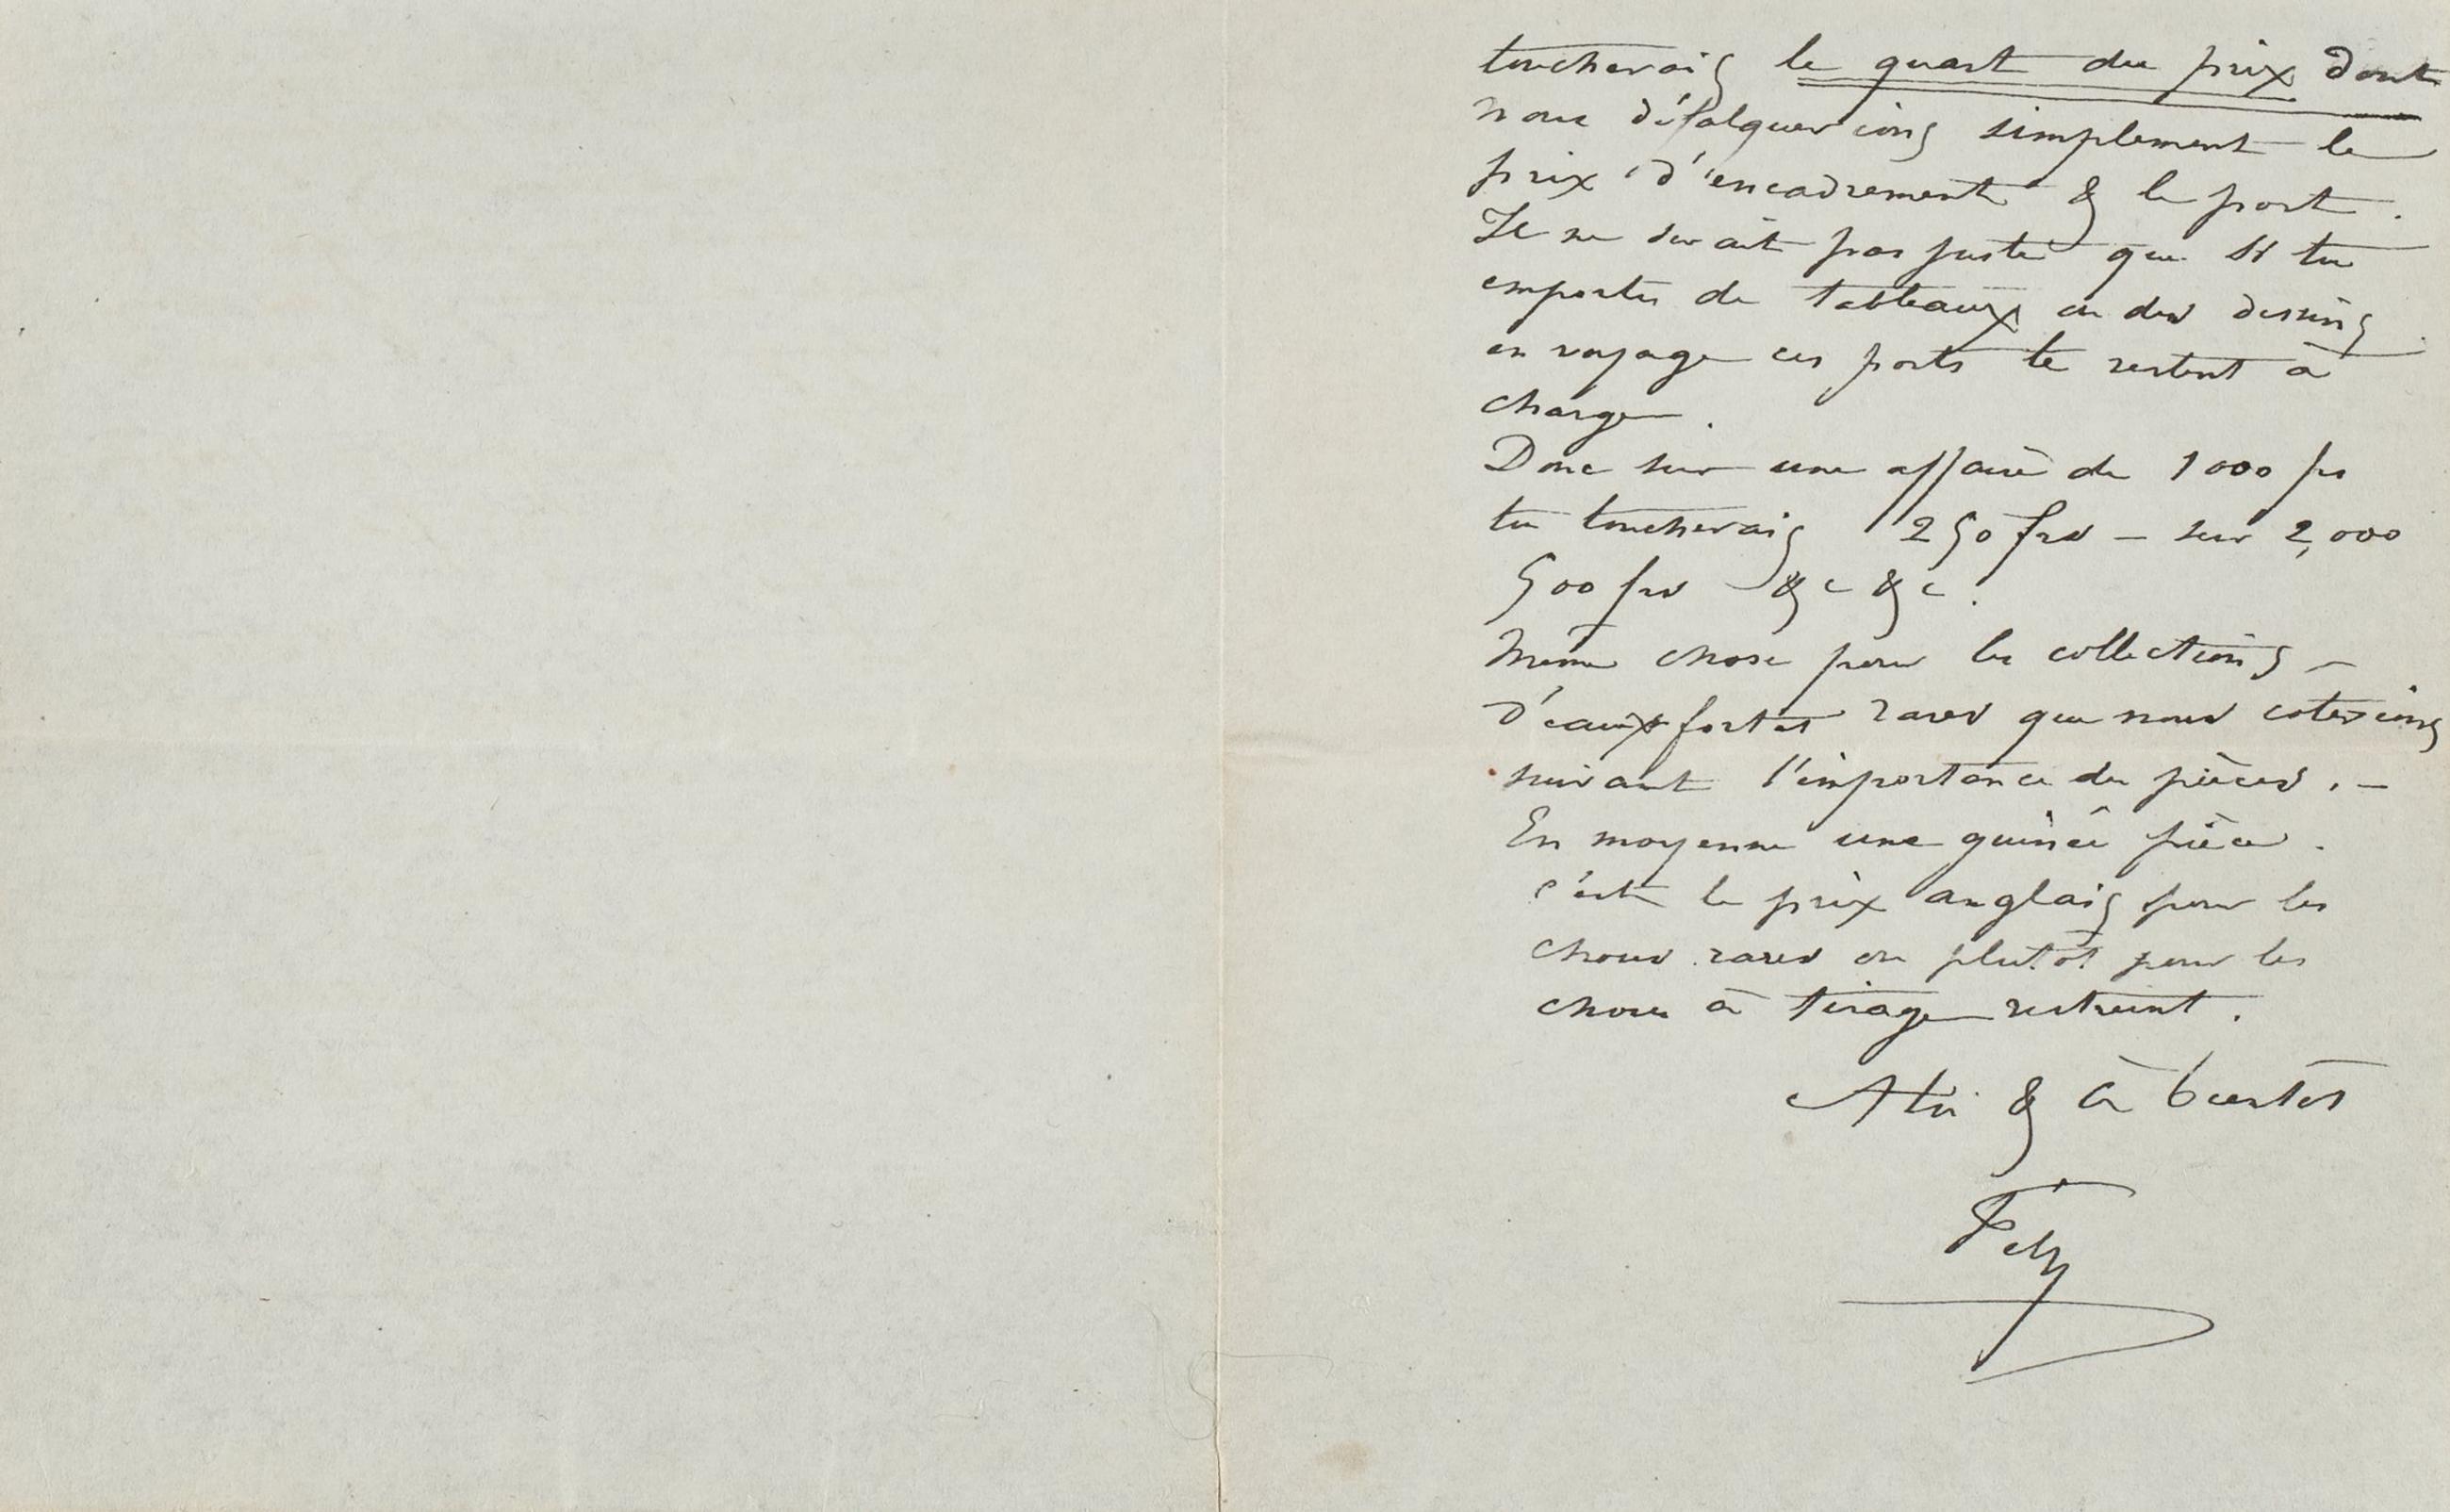 toucherais le quart du prix dont
nous défalquerions simplement le
prix d'encadrement & le port.
Il ne serait pas juste que si tu
emportes de tableaux ou des dessins
en voyage ces ports te restent à
charge.
Donc sur une affaire de 1000 frs
tu toucherais 250 frs – sur 2,000
500 frs &c &c.
Même chose pour les collections –
d'eaux fortes rares que nous coterions
suivant l'importance des pièces. –
En moyenne une guinée pièce.
c'est le prix anglais pour les
choses rares ou plutôt pour les
choses à tirage restreint.
A toi & à bientôt
Fély